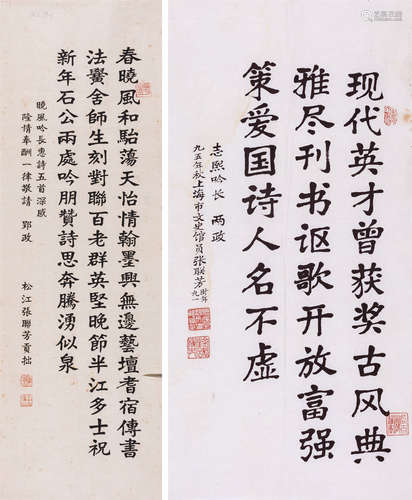 现代英才曾获奖古风典
雅尽刊书讴歌开放富强
策爱国诗人名不虚
志熙吟长 两政
九五年秋上海市文史馆员张联芳 时年九一
春曉風和駘蕩天怡情翰墨興無邊藝壇耆宿傳書
法黌舍師生刻對聯百老群英堅晚節半江多士祝
新年石公兩處吟朋贊詩思奔騰湧似泉
曉風吟長惠詩五首深感
隆情奉酬一律敬請 郢政
松江張聯芳貢拙